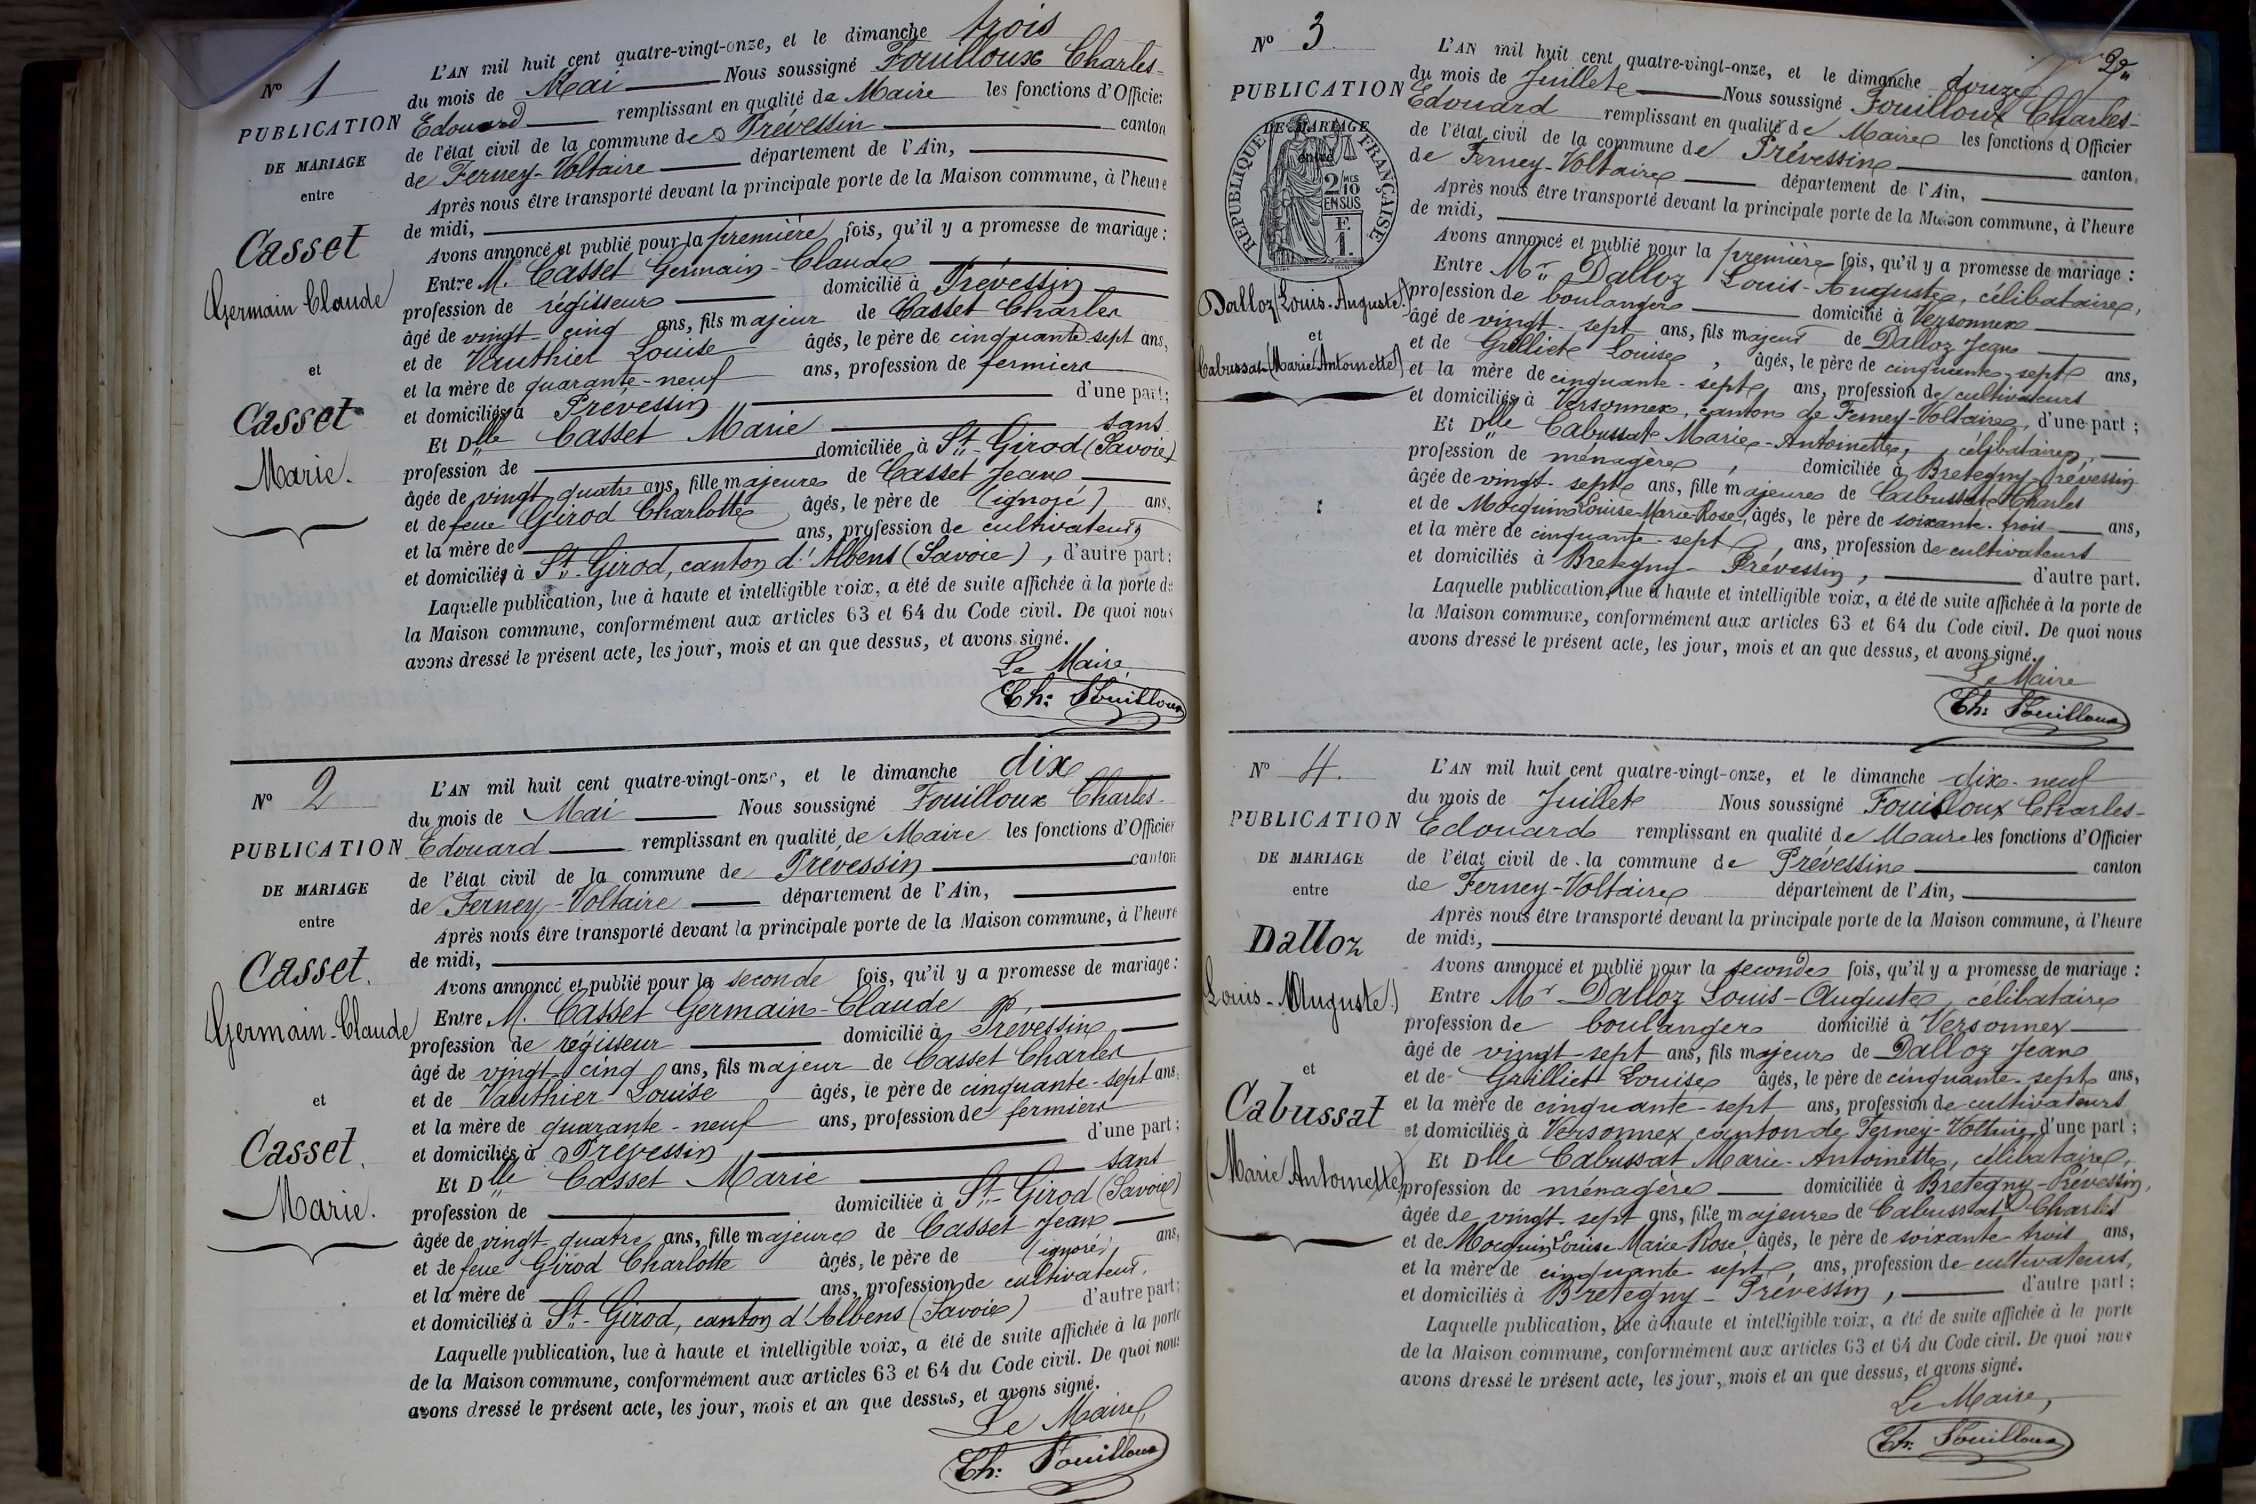 N° 1
PUBLICATION
DE MARIAGE
entre
Casset
Germain Claude
et
Casset
Marie.
L'AN mil huit cent quatre-vingt-onze, et le dimanche trois
du mois de Mai Nous soussigné Fouilloux Charles-
Edouard remplissant en qualité de Maire les fonctions d'Officier
de l'état civil de la commune de Prévessin canton
de Ferney-Voltaire département de l'Ain,
Après nous être transporté devant la principale porte de la Maison commune, à l'heure
de midi,
Avons annoncé et publié pour la première fois, qu'il y a promesse de mariage :
Entre M. Casset Germain-Claude
profession de régisseur domicilié à Prévessin
âgé de vingt-cinq ans, fils majeur de Casset Charles
et de Vauthier Louise âgés, le père de cinquante sept ans,
et la mère de quarante-neuf ans, profession de fermiers
et domiciliés à Prévessin d'une part;
Et Dlle Casset Marie sans
profession de domiciliée à St-Girod (Savoie)
âgée de vingt quatre ans, fille majeure de Casset Jean
et de feue Girod Charlotte âgés, le père de (ignoré) ans,
et la mère de ans, profession de cultivateurs
et domiciliés à St-Girod, canton d'Albens (Savoie), d'autre part:
Laquelle publication, lue à haute et intelligible voix, a été de suite affichée à la porte de
la Maison commune, conformément aux articles 63 et 64 du Code civil. De quoi nous
avons dressé le présent acte, les jour, mois et an que dessus, et avons signé.
Le Maire
Ch: Fouilloux
N° 2
PUBLICATION
DE MARIAGE
entre
Casset.
Germain-Claude
et
Casset.
Marie.
L'AN mil huit cent quatre-vingt-onze, et le dimanche dix
du mois de Mai Nous soussigné Fouilloux Charles-
Edouard remplissant en qualité de Maire les fonctions d'Officier
de l'état civil de la commune de Prévessin canton
de Ferney-Voltaire département de l'Ain,
Après nous être transporté devant la principale porte de la Maison commune, à l'heure
de midi,
Avons annoncé et publié pour la seconde fois, qu'il y a promesse de mariage :
Entre M. Casset Germain-Claude,
profession de régisseur domicilié à Prévessin
âgé de vingt-cinq ans, fils majeur de Casset Charles
et de Vauthier Louise âgés, le père de cinquante-sept ans,
et la mère de quarante-neuf ans, profession de fermiers
et domiciliés à Prévessin d'une part;
Et Dlle Casset Marie sans
profession de domiciliée à St-Girod (Savoie)
âgée de vingt quatre ans, fille majeure de Casset Jean
et de feue Girod Charlotte âgés, le père de (ignoré) ans,
et la mère de ans, profession de cultivateur,
et domiciliés à St-Girod, canton d'Albens (Savoie) d'autre part;
Laquelle publication, lue à haute et intelligible voix, a été de suite affichée à la porte
de la Maison commune, conformément aux articles 63 et 64 du Code civil. De quoi nous
avons dressé le présent acte, les jour, mois et an que dessus, et avons signé.
Le Maire,
Ch: Fouilloux
N° 3
PUBLICATION
DE MARIAGE
entre
RÉPUBLIQUE FRANÇAISE
2/10 MES
EN SUS
F.
1.
Dalloz (Louis-Auguste)
et
Cabussat (Marie Antoinette)
L'AN mil huit cent quatre-vingt-onze, et le dimanche douze
du mois de Juillet Nous soussigné Fouilloux Charles-
Edouard remplissant en qualité de Maire les fonctions d'Officier
de l'état civil de la commune de Prévessin canton
de Ferney-Voltaire département de l'Ain,
Après nous être transporté devant la principale porte de la Maison commune, à l'heure
de midi,
Avons annoncé et publié pour la première fois, qu'il y a promesse de mariage :
Entre Mr Dalloz Louis-Auguste, célibataire,
profession de boulanger domicilié à Versonnex
âgé de vingt-sept ans, fils majeur de Dalloz Jean
et de Grilliet Louise, âgés, le père de cinquante-sept ans,
et la mère de cinquante-sept, ans, profession de cultivateurs
et domiciliés à Versonnex, canton de Ferney-Voltaire, d'une part;
Et Dlle Cabussat Marie-Antoinette, célibataire,
profession de ménagère, domiciliée à Bretegny-Prévessin
âgée de vingt-sept ans, fille majeure de Cabussat Charles
et de Mocquin Louise-Marie-Rose, âgés, le père de soixante-trois ans,
et la mère de cinquante-sept, ans, profession de cultivateurs
et domiciliés à Bretegny-Prévessin, d'autre part.
Laquelle publication, lue à haute et intelligible voix, a été de suite affichée à la porte de
la Maison commune, conformément aux articles 63 et 64 du Code civil. De quoi nous
avons dressé le présent acte, les jour, mois et an que dessus, et avons signé.
Le Maire
Ch: Fouilloux
N° 4.
PUBLICATION
DE MARIAGE
entre
Dalloz
(Louis-Auguste)
et
Cabussat
(Marie Antoinette)
L'AN mil huit cent quatre-vingt-onze, et le dimanche dix-neuf
du mois de Juillet Nous soussigné Fouilloux Charles-
Edouard remplissant en qualité de Maire les fonctions d'Officier
de l'état civil de la commune de Prévessin canton
de Ferney-Voltaire département de l'Ain,
Après nous être transporté devant la principale porte de la Maison commune, à l'heure
de midi,
Avons annoncé et publié pour la seconde fois, qu'il y a promesse de mariage :
Entre Mr Dalloz Louis-Auguste, célibataire
profession de boulanger domicilié à Versonnex
âgé de vingt-sept ans, fils majeur de Dalloz Jean
et de Grilliet Louise âgés, le père de cinquante-sept ans,
et la mère de cinquante-sept ans, profession de cultivateurs
et domiciliés à Versonnex canton de Ferney-Voltaire d'une part;
Et Dlle Cabussat Marie-Antoinette, célibataire,
profession de ménagère domiciliée à Bretegny-Prévessin,
âgée de vingt-sept ans, fille majeure de Cabussat Charles
et de Mocquin Louise Marie Rose, âgés, le père de soixante trois ans,
et la mère de cinquante sept, ans, profession de cultivateurs,
et domiciliés à Bretegny-Prévessin, d'autre part;
Laquelle publication, lue à haute et intelligible voix, a été de suite affichée à la porte
de la Maison commune, conformément aux articles 63 et 64 du Code civil. De quoi nous
avons dressé le présent acte, les jour, mois et an que dessus, et avons signé.
Le Maire,
Ch. Fouilloux